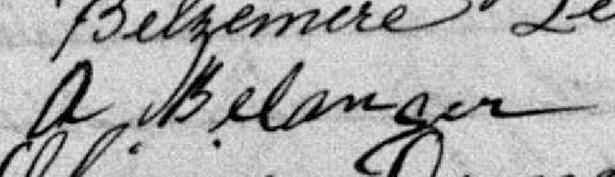 Belzemere Le
A Belanger